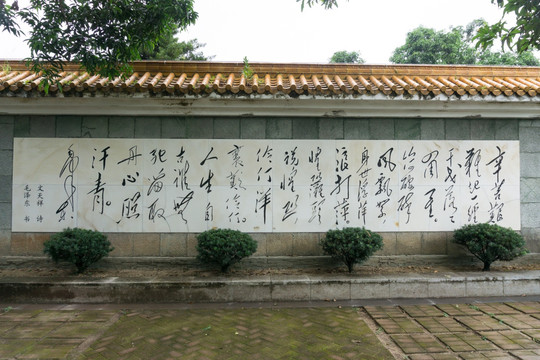 辛苦遭
逢起一经
干戈落落
四周星
山河破碎
风飘絮
身世浮沉
雨打萍
惶恐滩头
说惶恐
伶仃洋
里叹伶仃
人生自
古谁无
死留取
丹心照
汗青
文天祥 诗
毛泽东 书